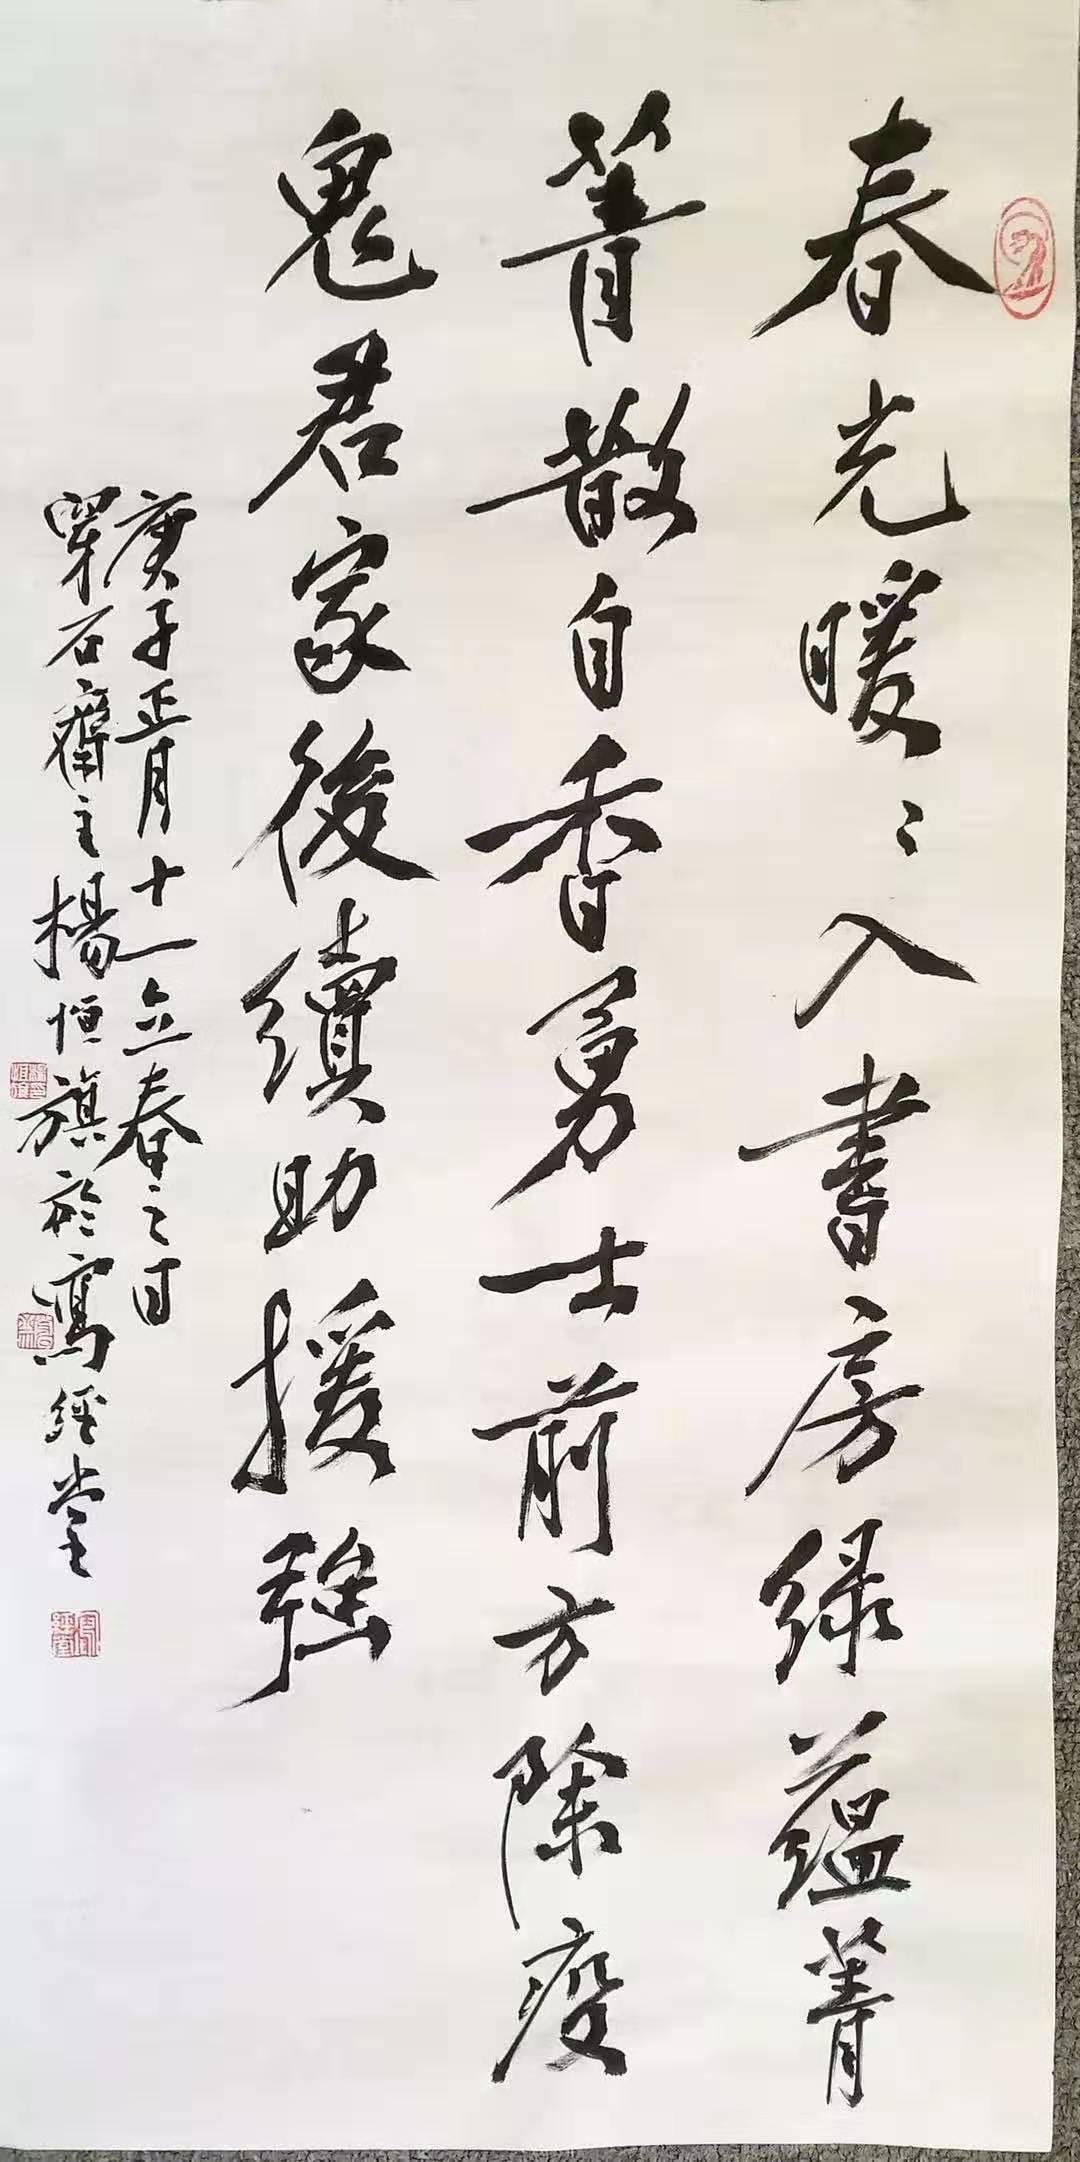 春光暖〻入書房绿蕴菁
菁散自香勇士前方除疫
鬼君家後續助援强
庚子正月十一立春之日
穿石齋主楊恒旗於寫經堂